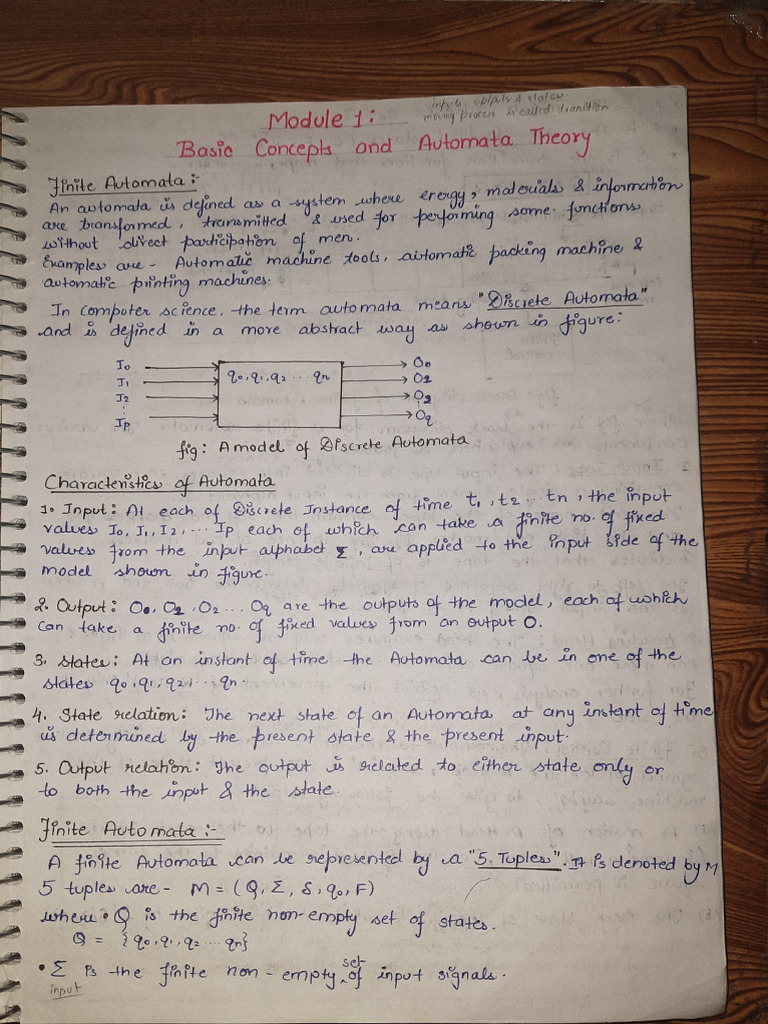 inputs, outputs & states
moving process is called transition
Module 1:
Basic Concepts and Automata Theory
Finite Automata:-
An automata is defined as a system where energy, materials & information
are transformed, transmitted & used for performing some functions
without direct participation of men.
Examples are - Automatic machine tools, automatic packing machine &
automatic printing machines.
In computer science, the term automata means "Discrete Automata"
and is defined in a more abstract way as shown in figure:
I0 O0
I1 q0, q1, q2 ... qn O2
I2 O2
Ip Oq
fig: A model of Discrete Automata
Characteristics of Automata
1. Input: At each of Discrete Instance of time t1, t2 .. tn, the input
values I0, I1, I2, ... Ip each of which can take a finite no. of fixed
values from the input alphabet Σ, are applied to the input side of the
model shown in figure.
2. Output: O0, O2, O2 ... Oq are the outputs of the model, each of which
can take a finite no. of fixed values from an output O.
3. States: At an instant of time the Automata can be in one of the
states q0, q1, q2, ... qn.
4. State relation: The next state of an Automata at any instant of time
is determined by the present state & the present input.
5. Output relation: The output is related to either state only or
to both the input & the state.
Finite Automata:-
A finite Automata can be represented by a "5 Tuples". It is denoted by M
5 tuples are - M = (Q, Σ, δ, q0, F)
where • Q is the finite non-empty set of states.
Q = {q0, q1, q2 .... qn}
• Σ is the finite non-empty set of input signals.
input